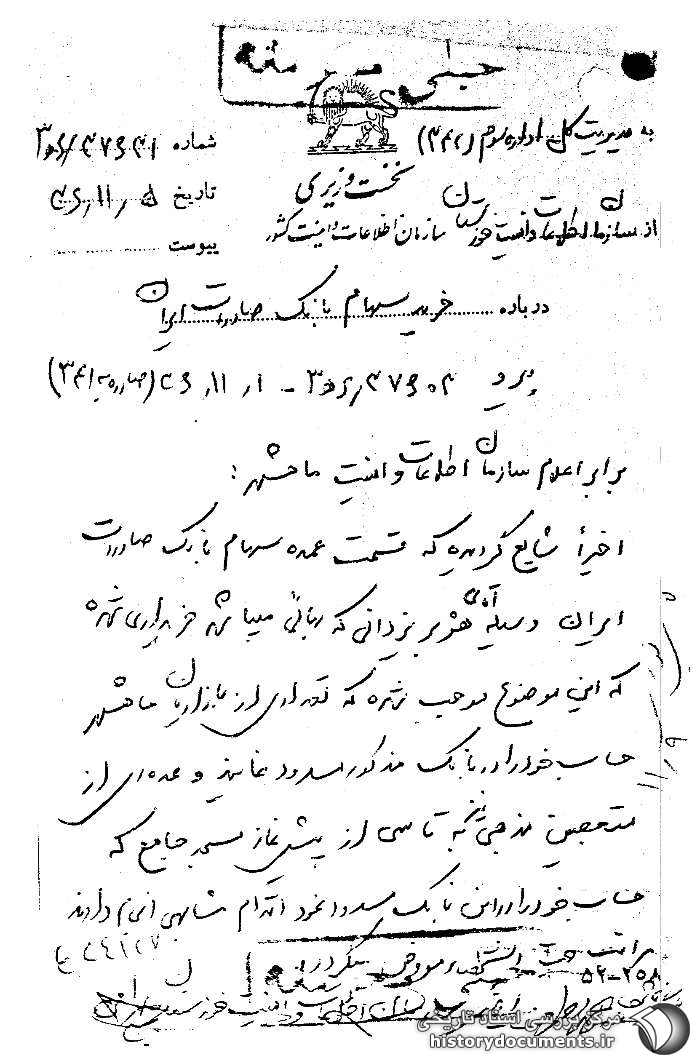 خیلی محرمانه
به مدیریت کل اداره سوم (۳۴۱)
شماره
تاریخ ۵ / ۱۱ /
پیوست
نخست وزیری
سازمان اطلاعات و امنیت کشور
از سازمان اطلاعات و امنیت خوزستان
درباره خرید سهام بانک صادرات ایران
پیرو
برابر اعلام سازمان اطلاعات و امنیت ماهشهر :
اخیراً شایع گردیده که قسمت عمده سهام بانک صادرات
ایران وسیله آقای هژبر یزدانی که بهائی میباشد خریداری شده
که این موضوع موجب شده که تعدادی از بازاریان ماهشهر
حساب خود را در بانک مذکور مسدود نمایند و عده‌ای از
متعصبین مذهبی نیز به تاسی از پیش نماز مسجد جامع که
حساب خود را در این بانک مسدود نمود اقدام مشابهی انجام دادند
مراتب جهت استحضار معروض میگردد
مرکز بررسی اسناد تاریخی
historydocuments.ir